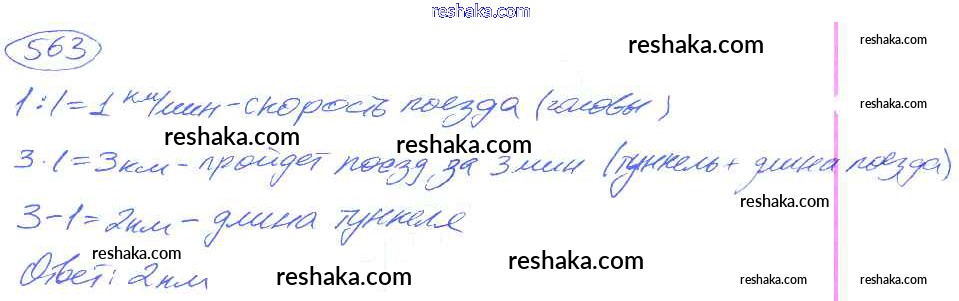 reshaka.com
563
reshaka.com
reshaka.com
1:1=1 км/мин - скорость поезда (головы)
reshaka.com
reshaka.com
reshaka.com
3·1=3км - пройдет поезд за 3 мин (туннель + длина поезда)
reshaka.com
reshaka.com
3-1=2км - длина туннеля
reshaka.com
reshaka.com
Ответ: 2км
reshaka.com
reshaka.com
reshaka.com